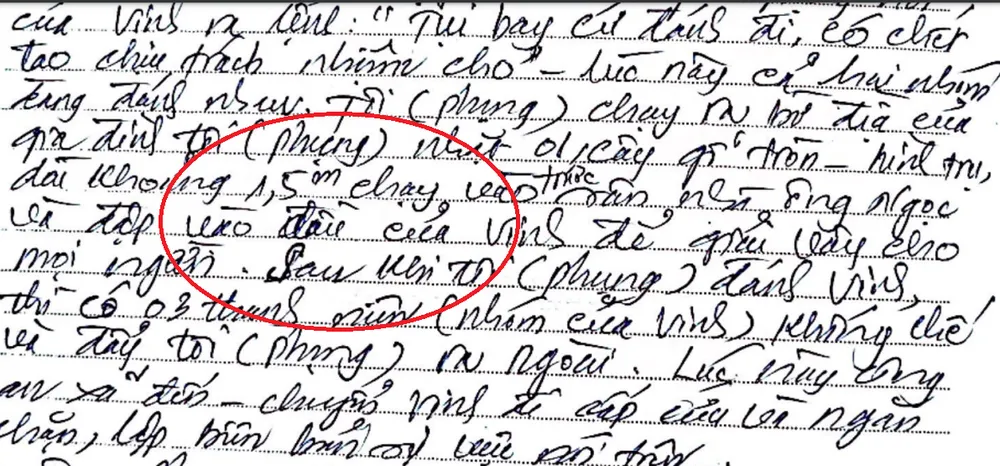 của Vinh ra lệnh: "Tụi bay cứ đánh đi, có chết
tao chịu trách nhiệm cho" – lúc này cả hai nhóm
đang đánh nhau, tôi (phụng) chạy ra bờ địa của
gia đình tôi (phụng) nhặt 01, cây gỗ tròn – hình trụ,
dài khoảng 1,5m chạy vào trước sân nhà ông Ngọc
và đập vào đầu của Vinh để giải vây cho
mọi người. Sau khi tôi (phụng) đánh Vinh,
thì có 03 thanh niên (nhóm của Vinh) khống chế
và đẩy tôi (phụng) ra ngoài. Lúc này công
an xã đến – chuyển Vinh đi cấp cứu và ngăn
chặn, lập biên bản vụ việc nói trên.